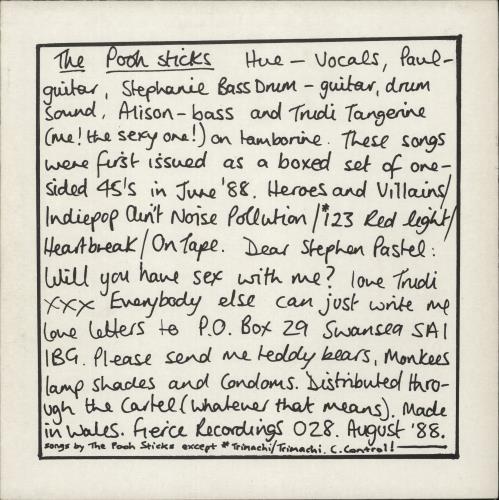 The Pooh Sticks Hue – Vocals, Paul-
guitar, Stephanie Bass Drum – guitar, drum
sound, Alison – bass and Trudi Tangerine
(me! the sexy one!) on tamborine. These songs
were first issued as a boxed set of one-
sided 45's in June '88. Heroes and Villains/
Indiepop Ain't Noise Pollution/*123 Red light/
Heartbreak/On Tape. Dear Stephen Pastel:
Will you have sex with me? love Trudi
xxx Everybody else can just write me
love letters to P.O. Box 29 Swansea SA1
1BG. Please send me teddy bears, Monkees
lamp shades and Condoms. Distributed thro-
ugh the Cartel (whatever that means). Made
in Wales. Fierce Recordings 028. August '88.
songs by The Pooh Sticks except *Trimachi/Trimachi. C. Control!